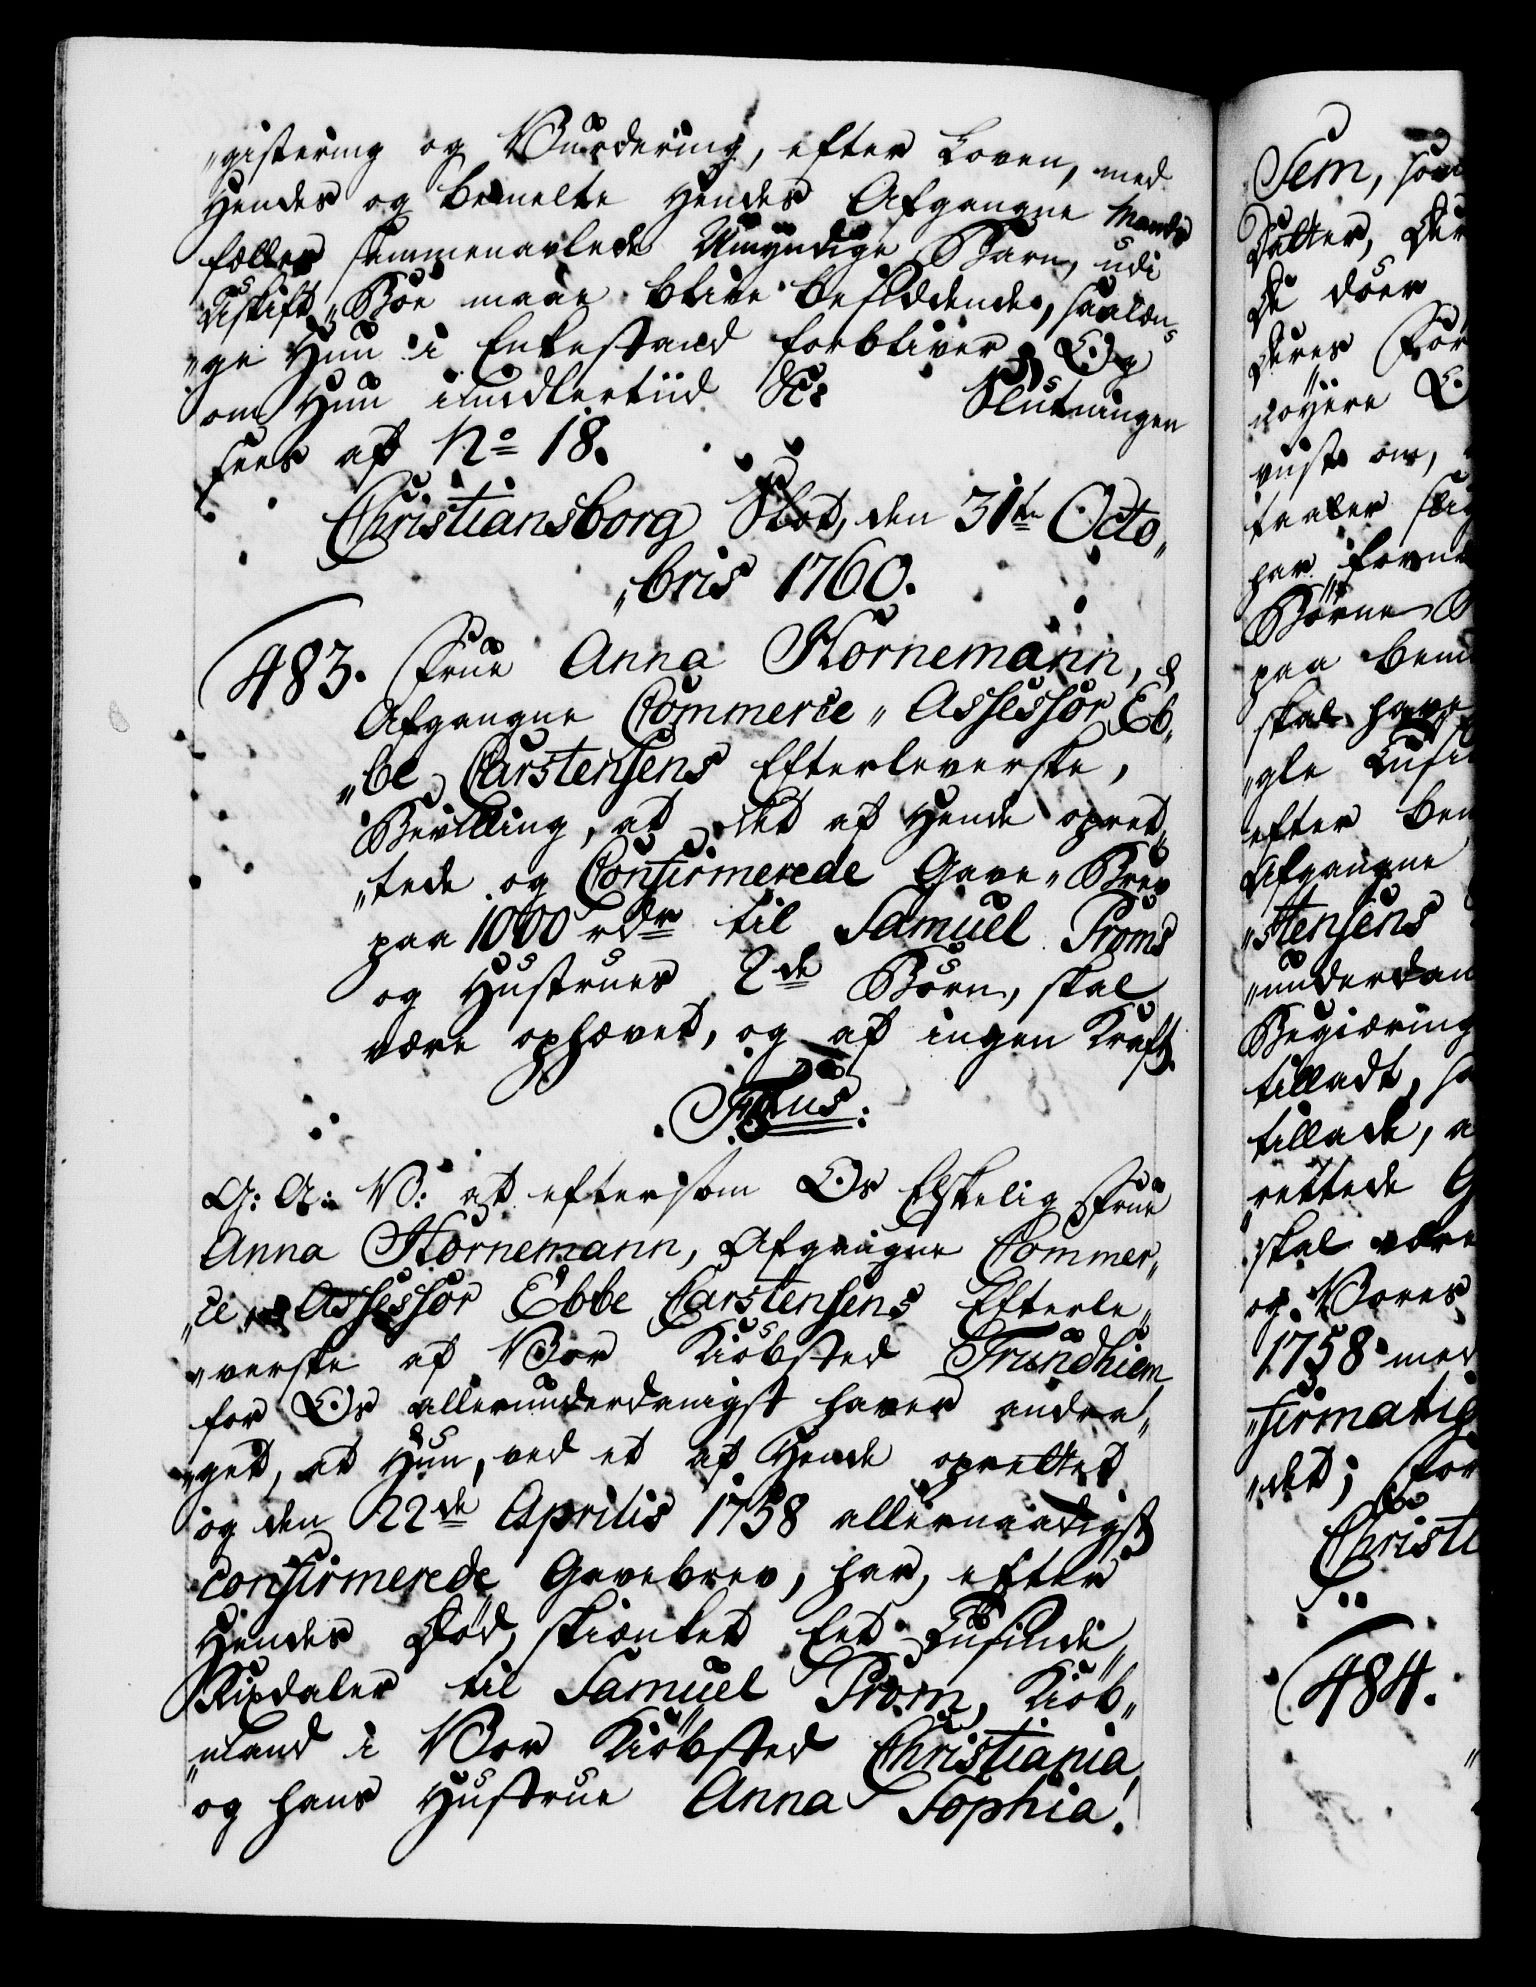 "gistering og Vurdering, efter Loven, med
Hendes og bemelte Hendes Afgangne Mands
fælles sammenavlede Umyndige Barn, udi
Uskift "Boe maae blive besiddende, saalæn"
"ge Hun i Enkestand forbliver, Og
om Hun imidlertiid &c: Slutningen
sees af No 18.
Christiansborg Slot, den 31te Octo"
"bris 1760.
483. Frue Anna Hornemann,
Afgangne Commerce "Assessor Eb"
"be Carstensens Efterleverske,
Bevilling, at det af Hende opret"
"tede og Confirmerede Gave "Brev
paa 1000 rdr til Samuel Proms
og Hustrues 2de Børn, skal
være ophævet, og af ingen Kraft.
F 5tus.
G: A: V: at eftersom Os Elskelig Frue
Anna Hornemann, Afgangne Commer"
"ce Assessor Ebbe Carstensens Efterle"
"verske af Vor Kiøbsted Trundhiem,
for Os allerunderdanigst haver andra"
"get, at Hun, ved et af Hende oprettet
og den 22de Aprilis 1758 allernaadigst
confirmerede Gavebrev, har, efter
Hendes Død, skienket Eet Tusinde
Rixdaler til Samuel Prom, Kiøb"
"mand i Vor Kiøbsted Christiania,
og hans Hustrue Anna Sophia
Sem, som
Datter,
De døer
Deres For
nøyere
vist om,
taaler
har
Børne
paa bem
skal have
"gle
efter bem
Afgangne
"stensens
"underdan
Begiering
tilladt,
tillade, a
rettede G
skal være
og Vores
1758 med
"firmatio
"det; For
Christi
484.